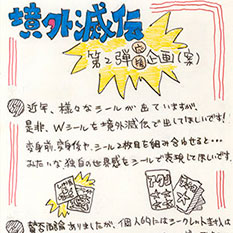 境外滅伝
第2弾企画(案)
近年、様々なシールが出ていますが、
是非、Wシールを境外滅伝で出してほしいです!
変身前、変身後や、シール2枚目を組み合わせると…
みたいな独自の世界感をシールで表現してほしいです。
ありましたが、個人的にはシークレット